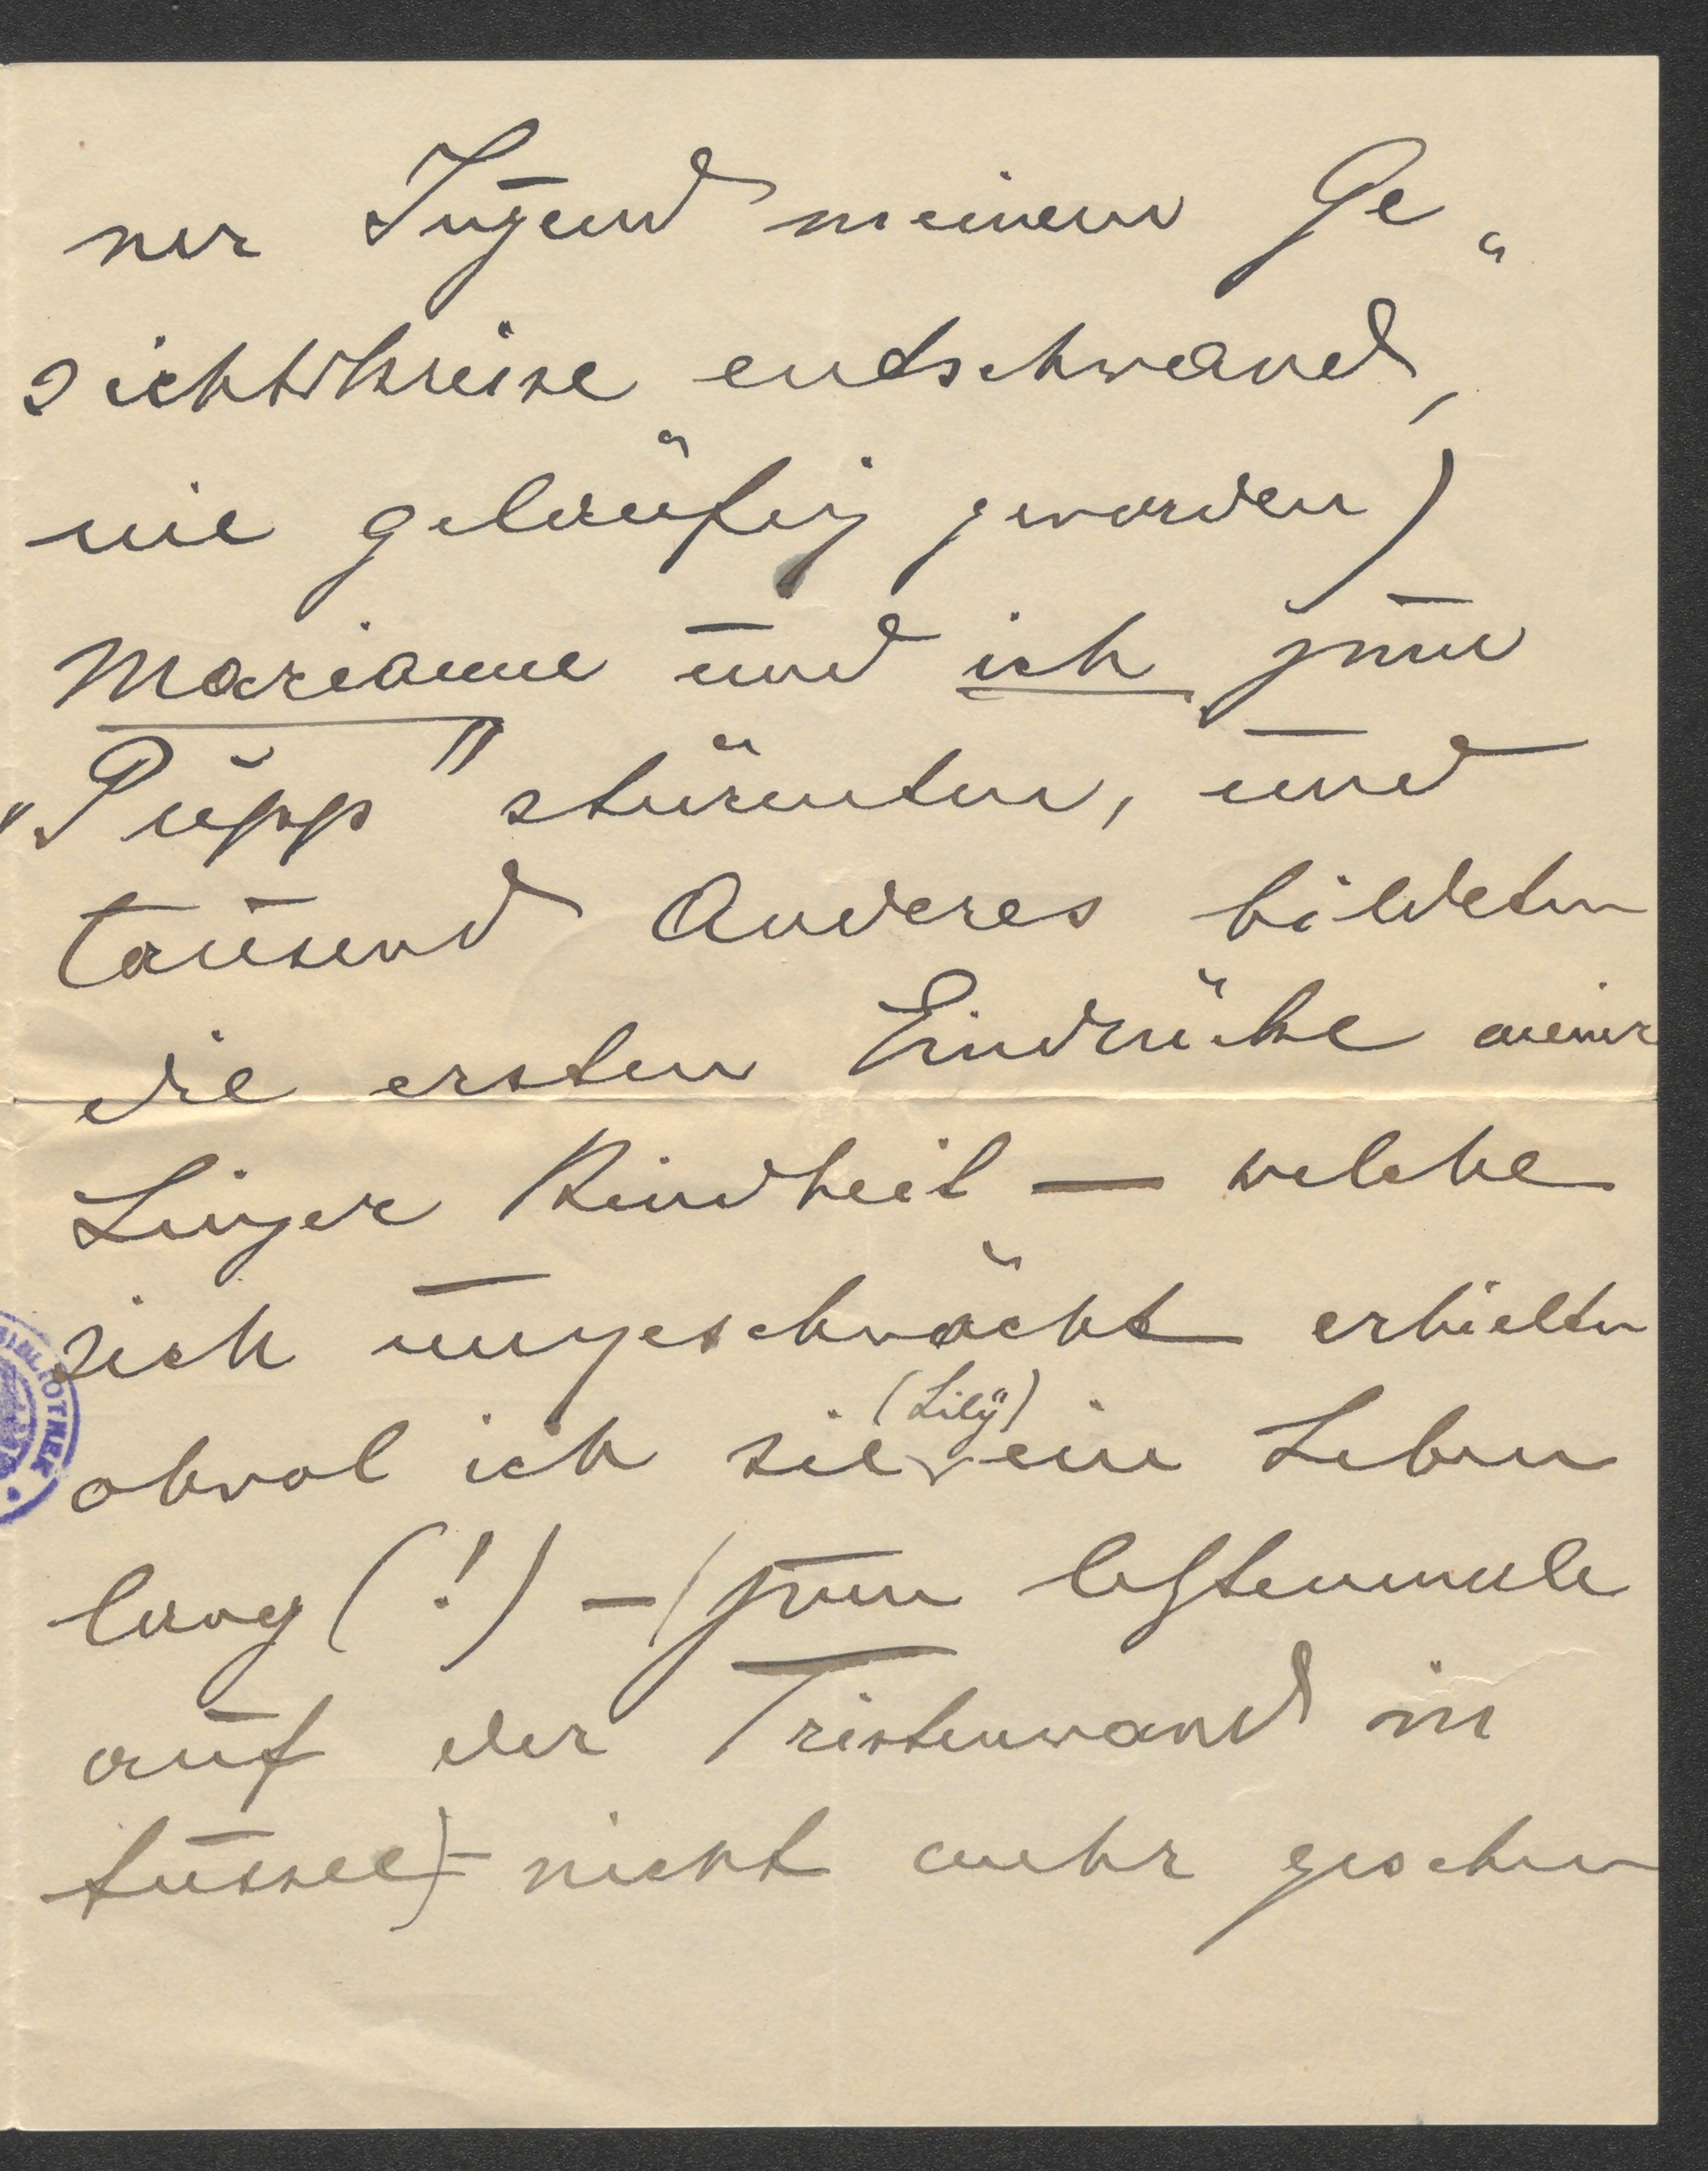 ner Jugend meinem Ge„
sichtskreise entschwand,
nie geläufig geworden)
Marianne und ich zum
„Pupp" stürmten, und
tausend Anderes bildeten
die ersten Eindrücke meiner
Linzer Kindheit — welche
sich ungeschwächt erhielten
obwol ich sie (Lily) ein Leben
lang (!) – (zum letztenmale
auf der Tristenwand in
Aussee) – nicht mehr gesehen
BIBLIOTHEK